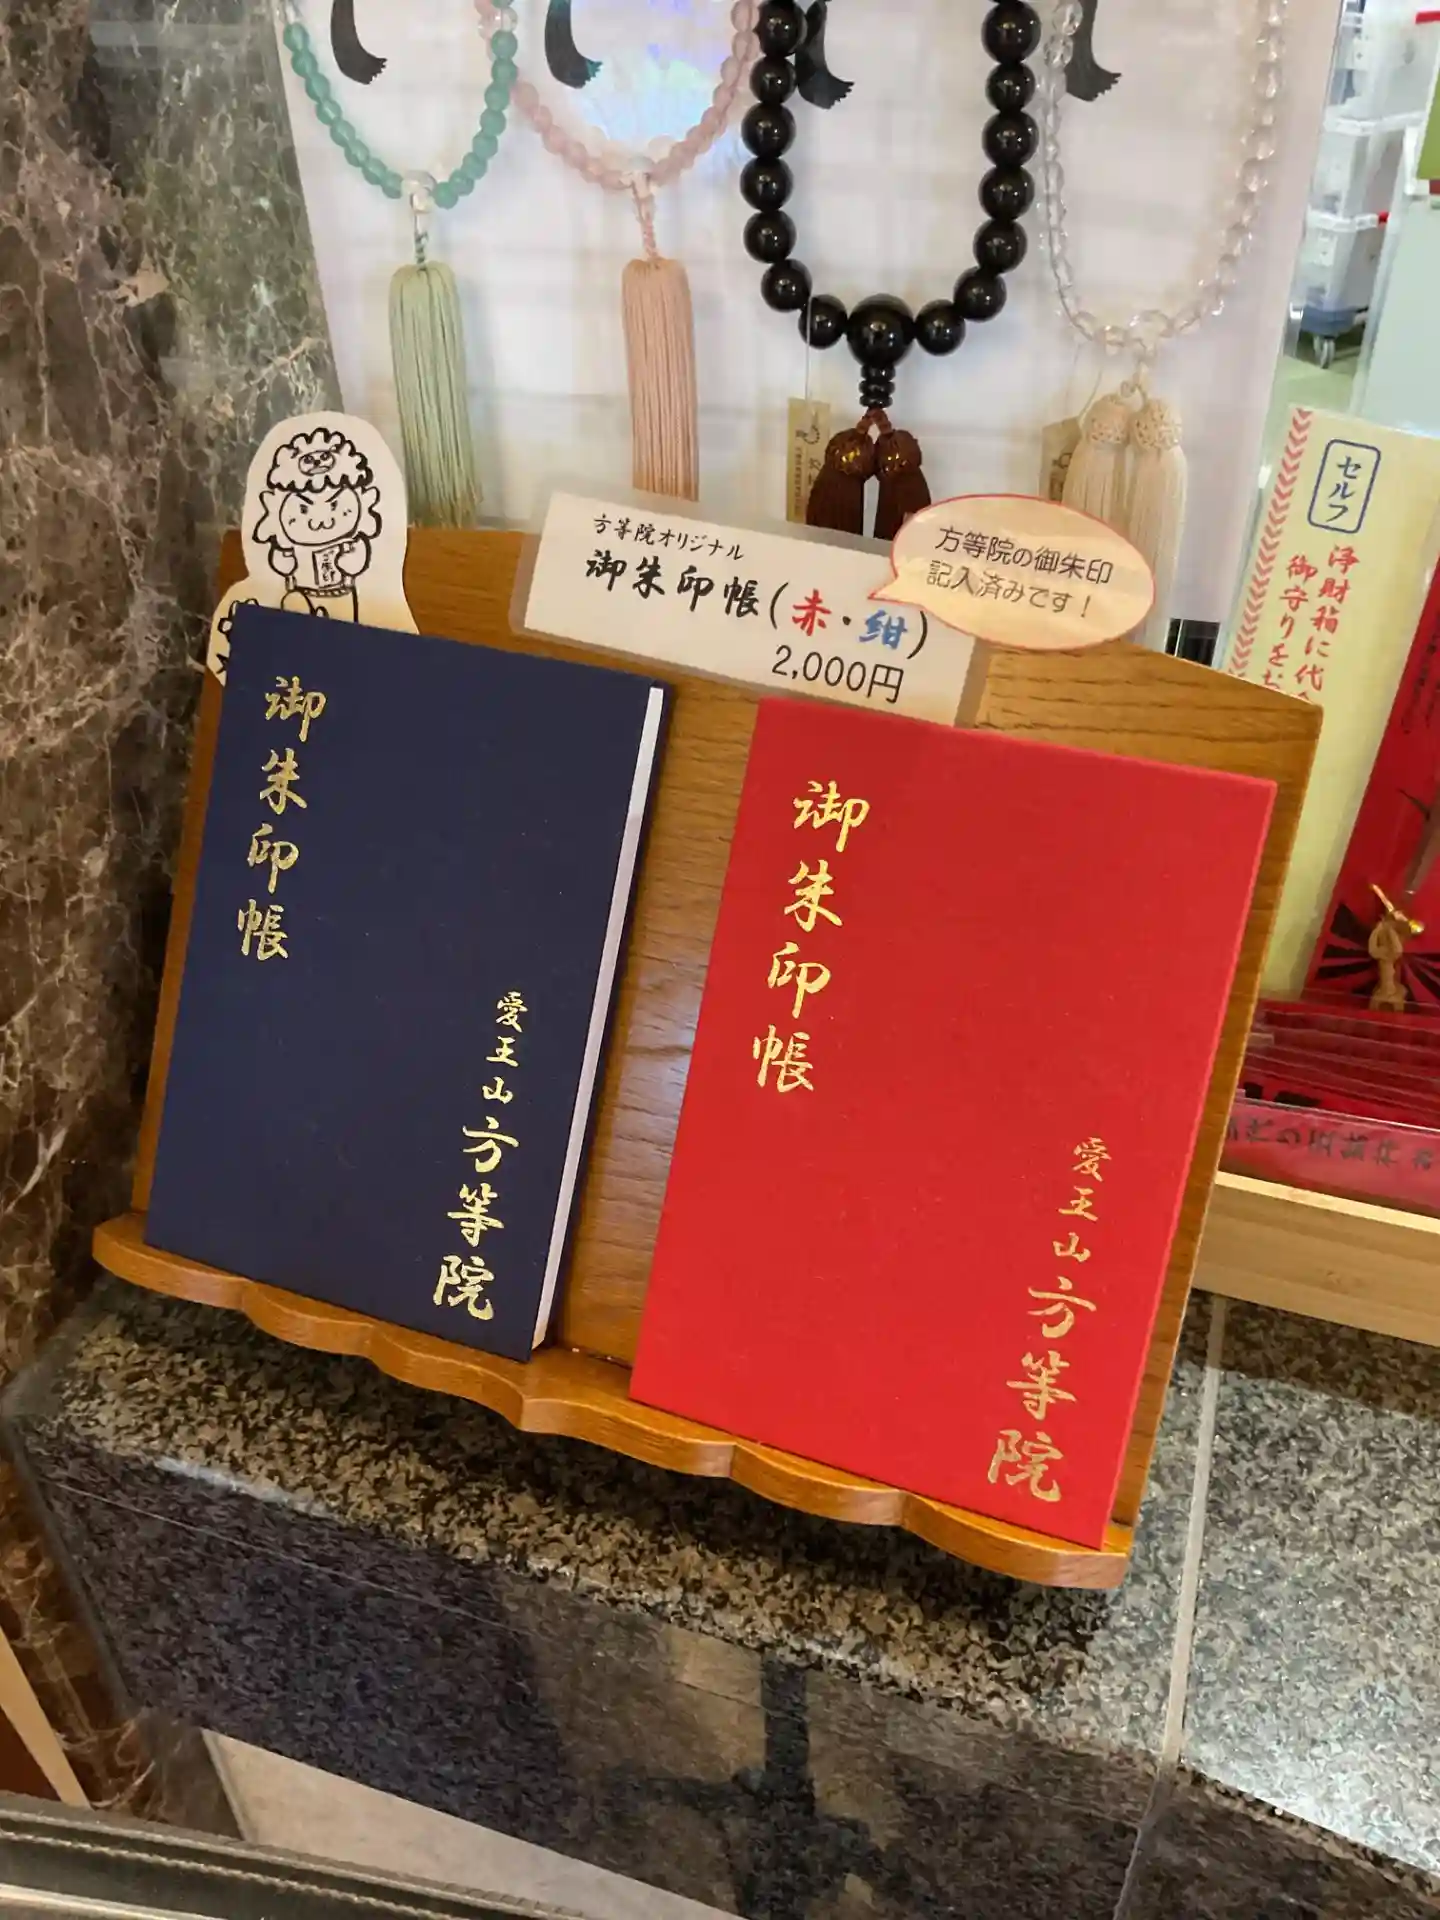 方等院オリジナル
御朱印帳(赤・紺)
2,000円
方等院の御朱印
記入済みです！
セルフ
浄財箱に代
御守りをお
御朱印帳
愛王山方等院
御朱印帳
愛王山方等院